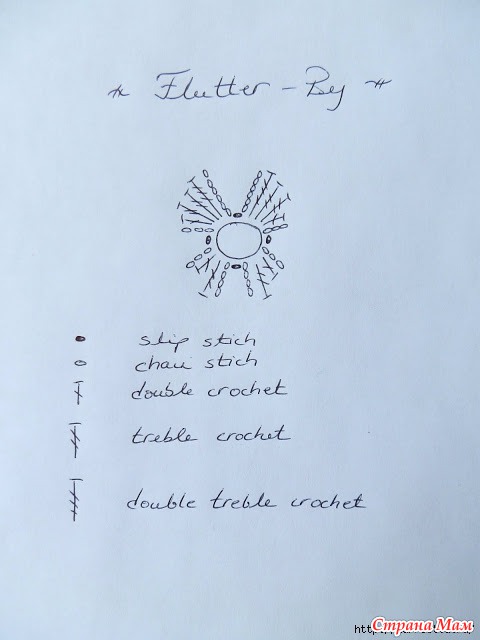 * Flutter - By *
slip stich
chain stich
double crochet
treble crochet
double treble crochet
Страна Мам